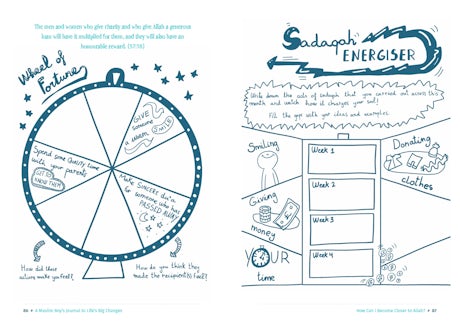 The men and women who give charity and who give Allah a generous
loan will have it multiplied for them, and they will also have an
honourable reward. (57:18)
Wheel of
Fortune
GIVE
someone
a warm
SMILE
Spend some QUALITY time
with your parents
GET TO
KNOW THEM
Make SINCERE du'a
for someone who has
PASSED AWAY
How did these
actions make you feel?
How do you think they
made the recipient(s) feel?
86 • A Muslim Boy's Journal to Life's Big Changes
Sadaqah
ENERGISER
Write down the acts of sadaqah that you carried out across this
month and watch how it changes your soul!
Fill the gaps with your ideas and examples.
Smiling
Giving
money
YOUR
time
Week 1
Week 2
Week 3
Week 4
Donating
clothes
How Can I Become Closer to Allah? • 87